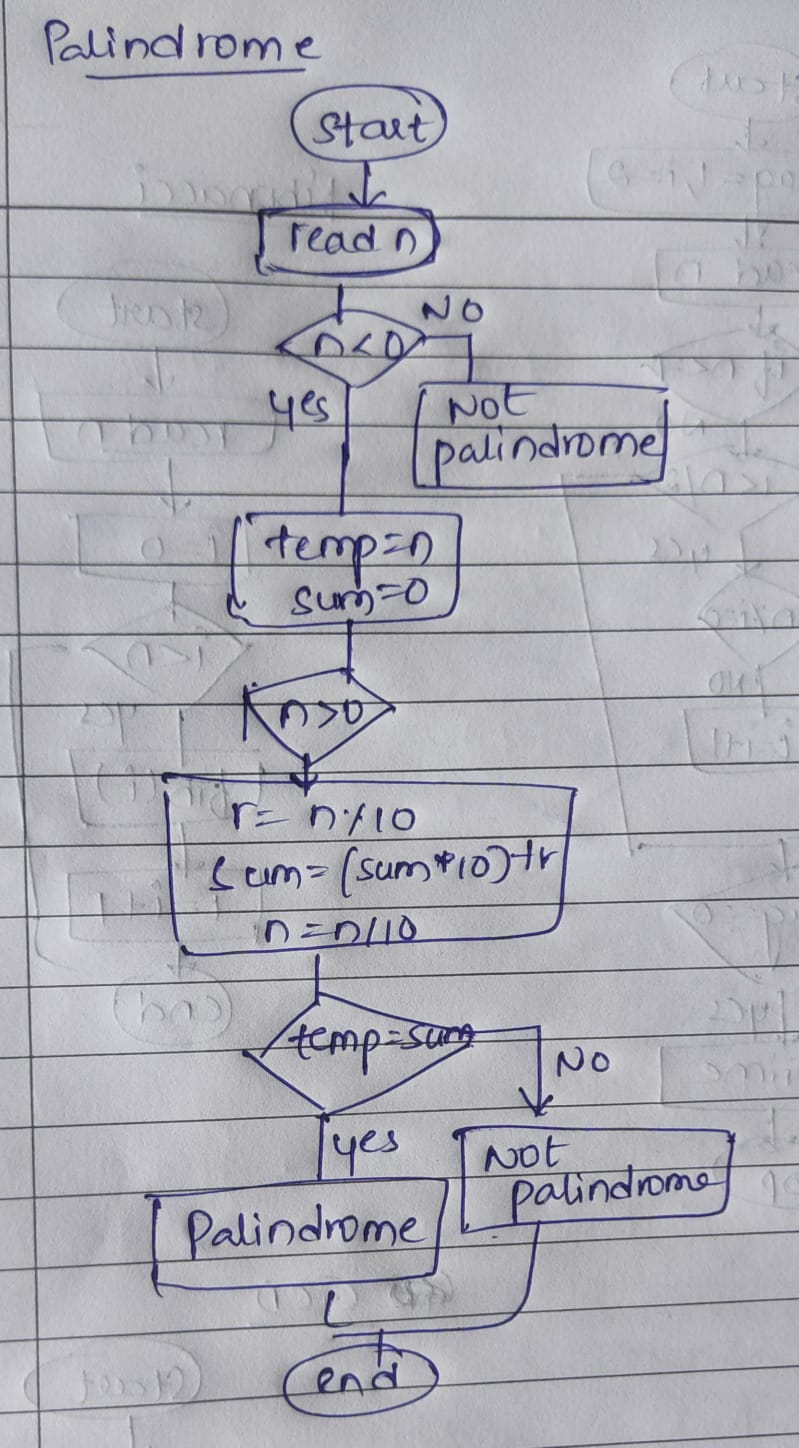 Palindrome
start
read n
n<0
NO
yes
Not
palindrome
temp=n
sum=0
n>0
r= n%10
sum=(sum*10)+r
n=n/10
temp=sum
NO
yes
Not
palindrome
Palindrome
end